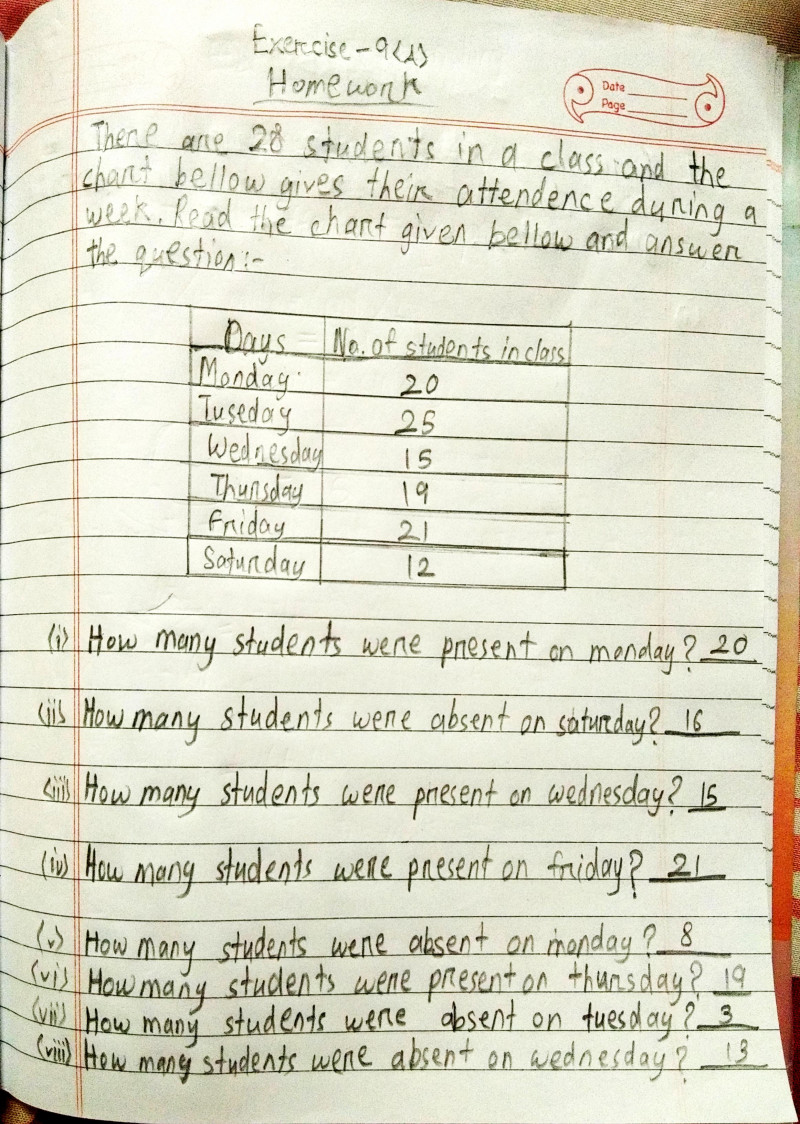 Exercise - 9(A)
Homework
Date
Page
There are 28 students in a class and the
chart bellow gives their attendence during a
week. Read the chart given bellow and answer
the question:-
Days No. of students in class
Monday 20
Tuseday 25
Wednesday 15
Thursday 19
Friday 21
Saturday 12
(i) How many students were present on monday? 20
(ii) How many students were absent on saturday? 16
(iii) How many students were present on wednesday? 15
(iv) How many students were present on friday? 21
(v) How many students were absent on monday? 8
(vi) How many students were present on thursday? 19
(vii) How many students were absent on tuesday? 3
(viii) How many students were absent on wednesday? 13